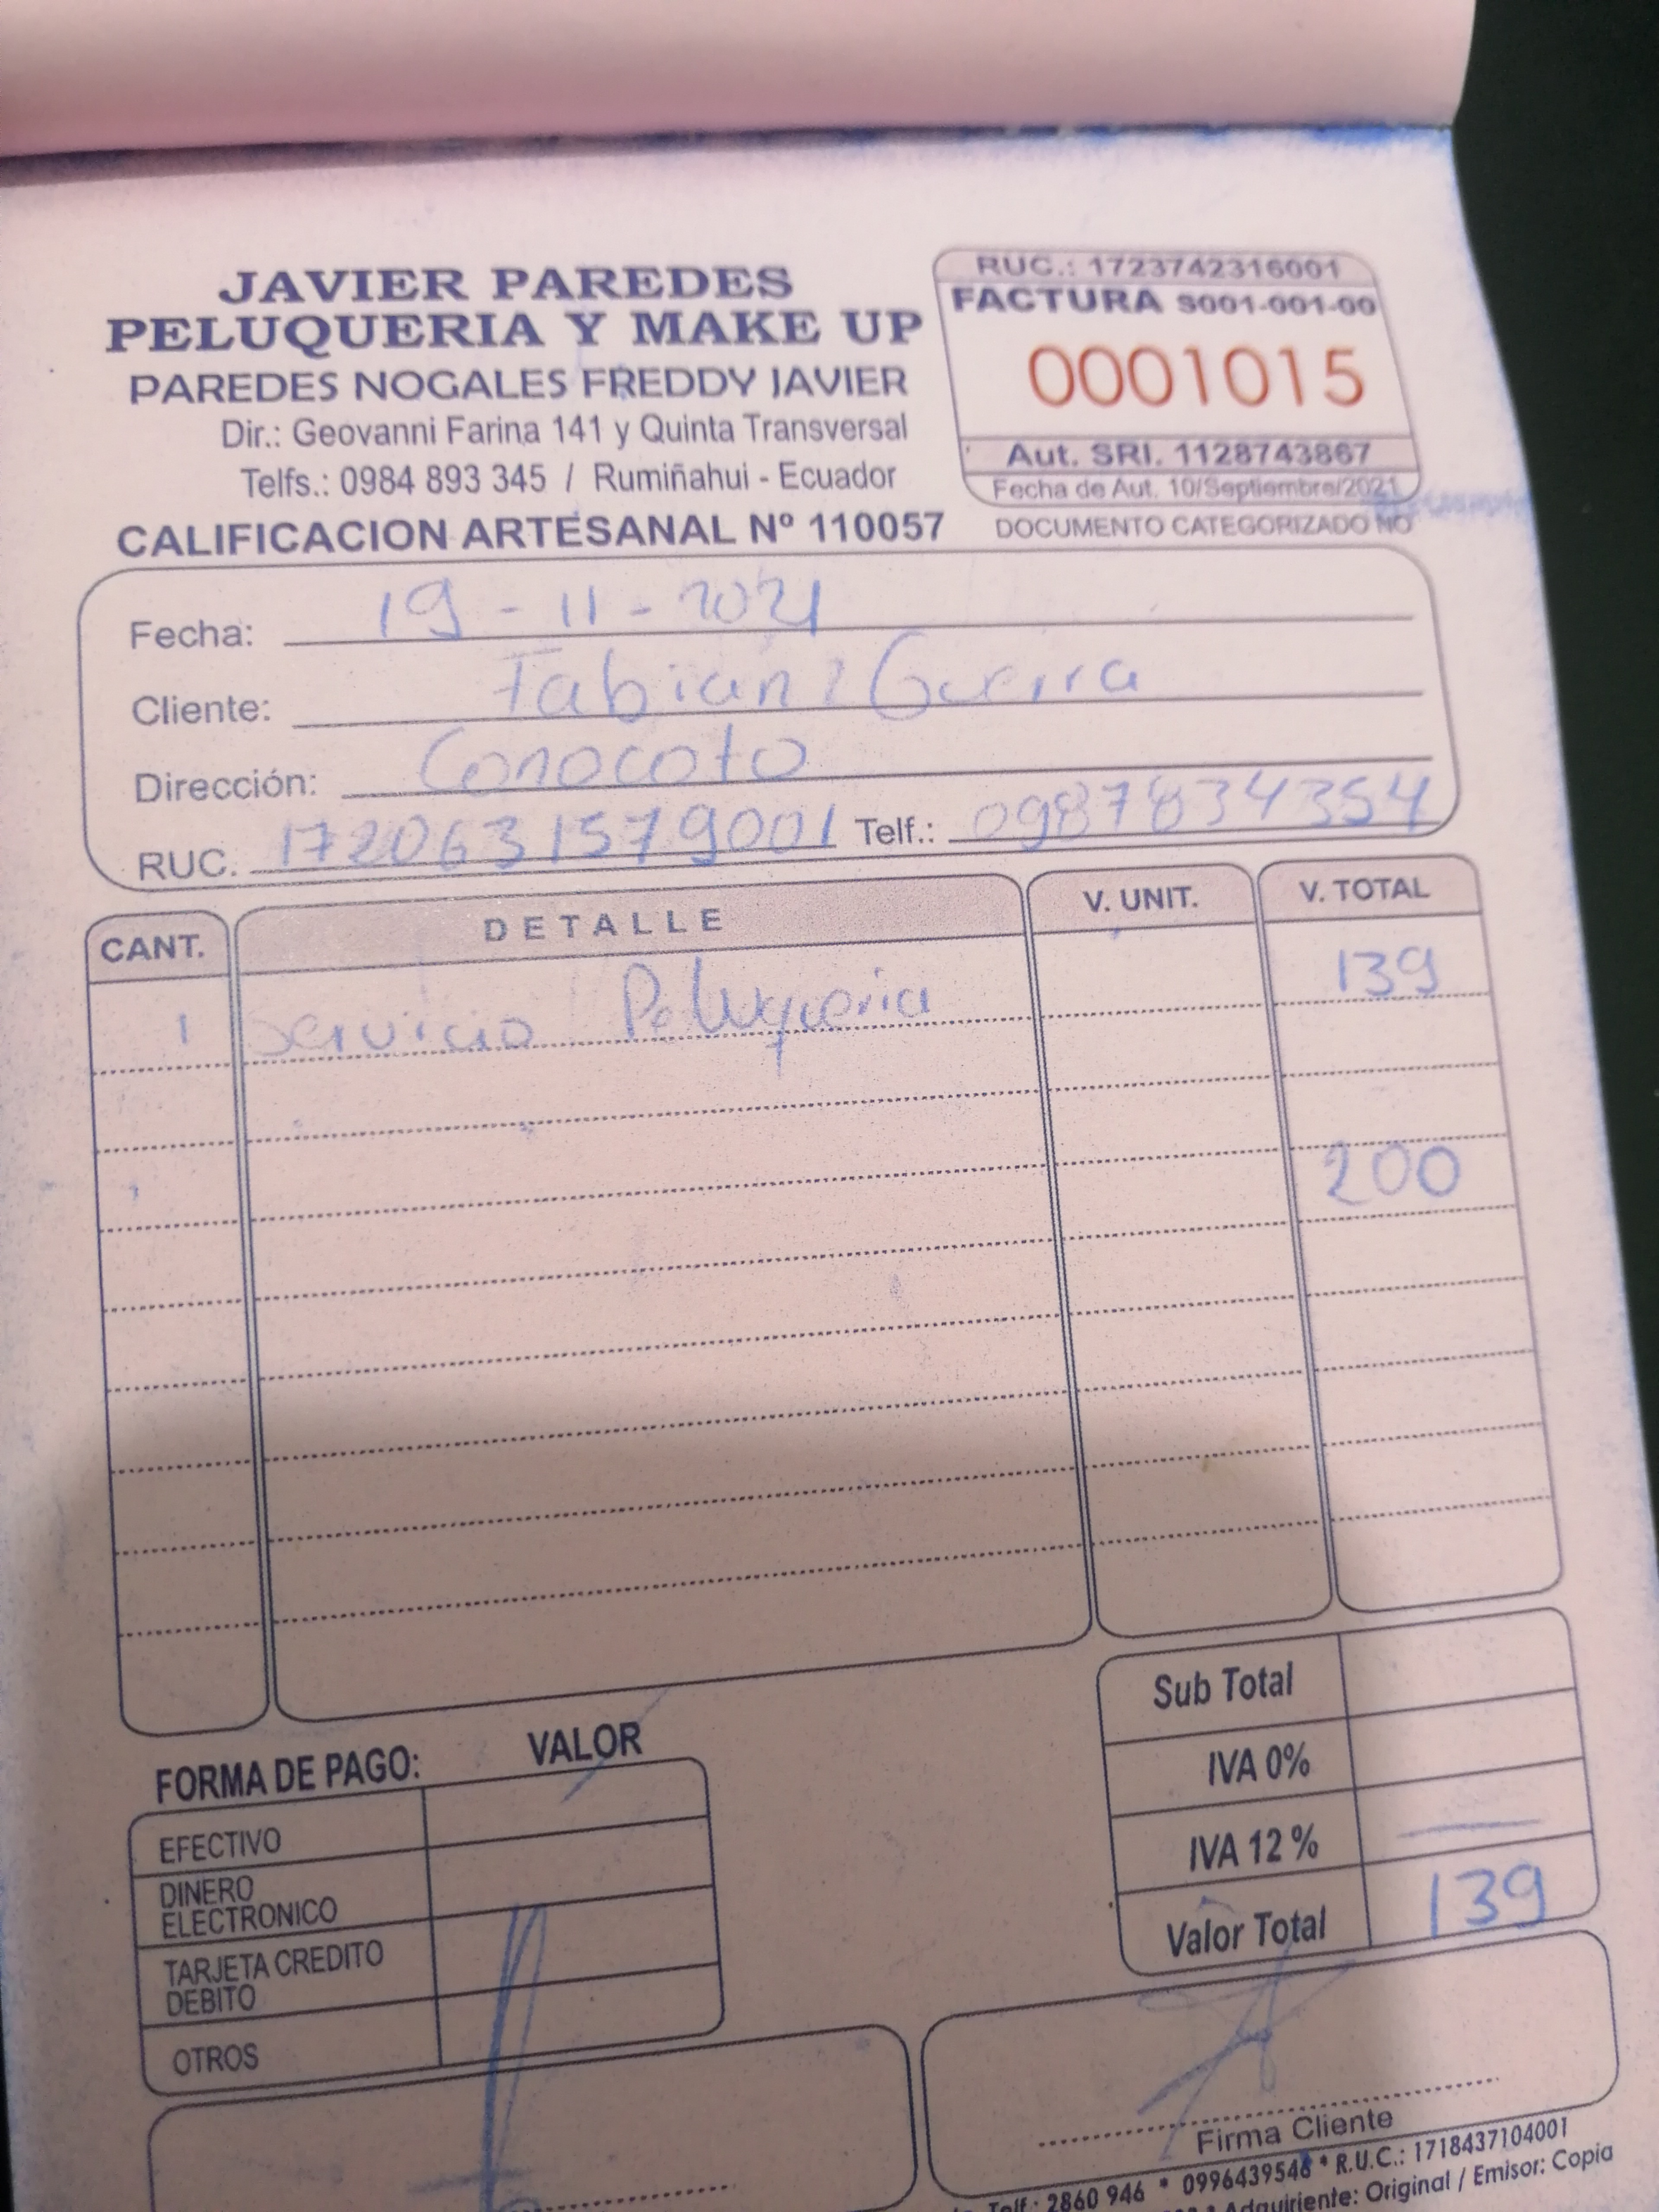 JAVIER PAREDES
PELUQUERIA Y MAKE UP
PAREDES NOGALES FREDDY JAVIER
Dir.: Geovanni Farina 141 y Quinta Transversal
Telfs.: 0984 893 345 / Rumiñahui - Ecuador
CALIFICACION ARTESANAL Nº 110057
RUC.: 1723742316001
FACTURA S001-001-00
0001015
Aut. SRI. 1128743867
Fecha de Aut. 10/Septiembre/2021
DOCUMENTO CATEGORIZADO NO
Fecha: 19 - 11 - 2021
Cliente: Fabian Guerra
Dirección: Conocoto
RUC. 1720631579001 Telf.: 0987834354
CANT. DETALLE V. UNIT. V. TOTAL
1 Servicio Peluqueria 139
200
Sub Total
IVA 0%
IVA 12 %
Valor Total 139
FORMA DE PAGO: VALOR
EFECTIVO
DINERO
ELECTRONICO
TARJETA CREDITO
DEBITO
OTROS
Firma Cliente
Telf.: 2860 946 * 0996439546 * R.U.C.: 1718437104001
Adquiriente: Original / Emisor: Copia